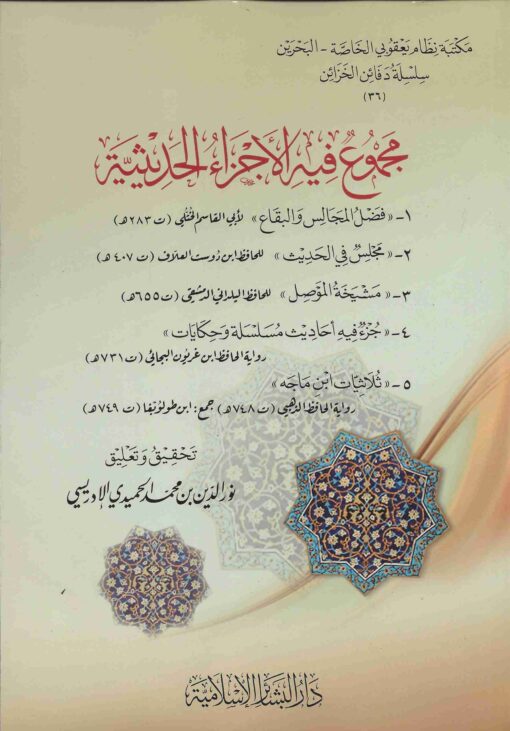 مَكتَبَة نِظَام يَعقُوبي الخَاصَّة - البَحْرَين
سِلسِلَةُ دَفَائِن الخَزَائِن
(٣٦)
مَجْمُوعٌ فِيهِ الأَجْزَاءُ الحَدِيثِيَّة
١- «فَضْلُ المَجَالِس وَالبِقَاع» لأبي القاسم الختلي (ت ٢٨٣ هـ)
٢- «مَجْلِسٌ فِي الحَدِيث» للحافظ ابن دوست العلاف (ت ٤٠٧ هـ)
٣- «مَشْيَخَةُ المَوْصِل» للحافظ اليلداني الدمشقي (ت ٦٥٥ هـ)
٤- «جُزْءٌ فِيهِ أَحَادِيث مُسَلسَلَة وَحِكَايَات»
رواية الحافظ ابن غريون البجائي (ت ٧٣١ هـ)
٥- «ثُلَاثِيَّات ابْن مَاجَه»
رواية الحافظ الذهبي (ت ٧٤٨ هـ) جمع: ابن طولوبغا (ت ٧٤٩ هـ)
تَحْقِيقُ وَتَعْلِيق
نور الدين بن محمد الحميدي الإدريسي
دَارُ البَشَائِرِ الإِسْلَامِيَّة